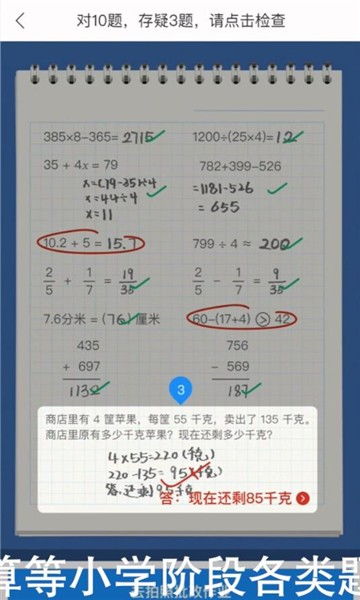 对10题，存疑3题，请点击检查
385×8-365= 2715
1200÷(25×4)= 12
35 + 4x = 79
x=(79-35)÷4
x=44÷4
x=11
782+399-526
=1181-526
= 655
10.2 + 5 = 15.7
799 ÷ 4 ≈ 200
2/5 + 1/7 = 19/35
2/5 - 1/7 = 9/35
7.6分米 = (76) 厘米
60-(17+4) > 42
435
+ 697
1132
756
- 569
187
3
商店里有 4 筐苹果，每筐 55 千克，卖出了 135 千克。
商店里原有多少千克苹果？现在还剩多少千克？
4×55=220 (千克)
220-135= 95 (千克)
答：现在还剩85千克
算等小学阶段各类题
云拍照批改作业